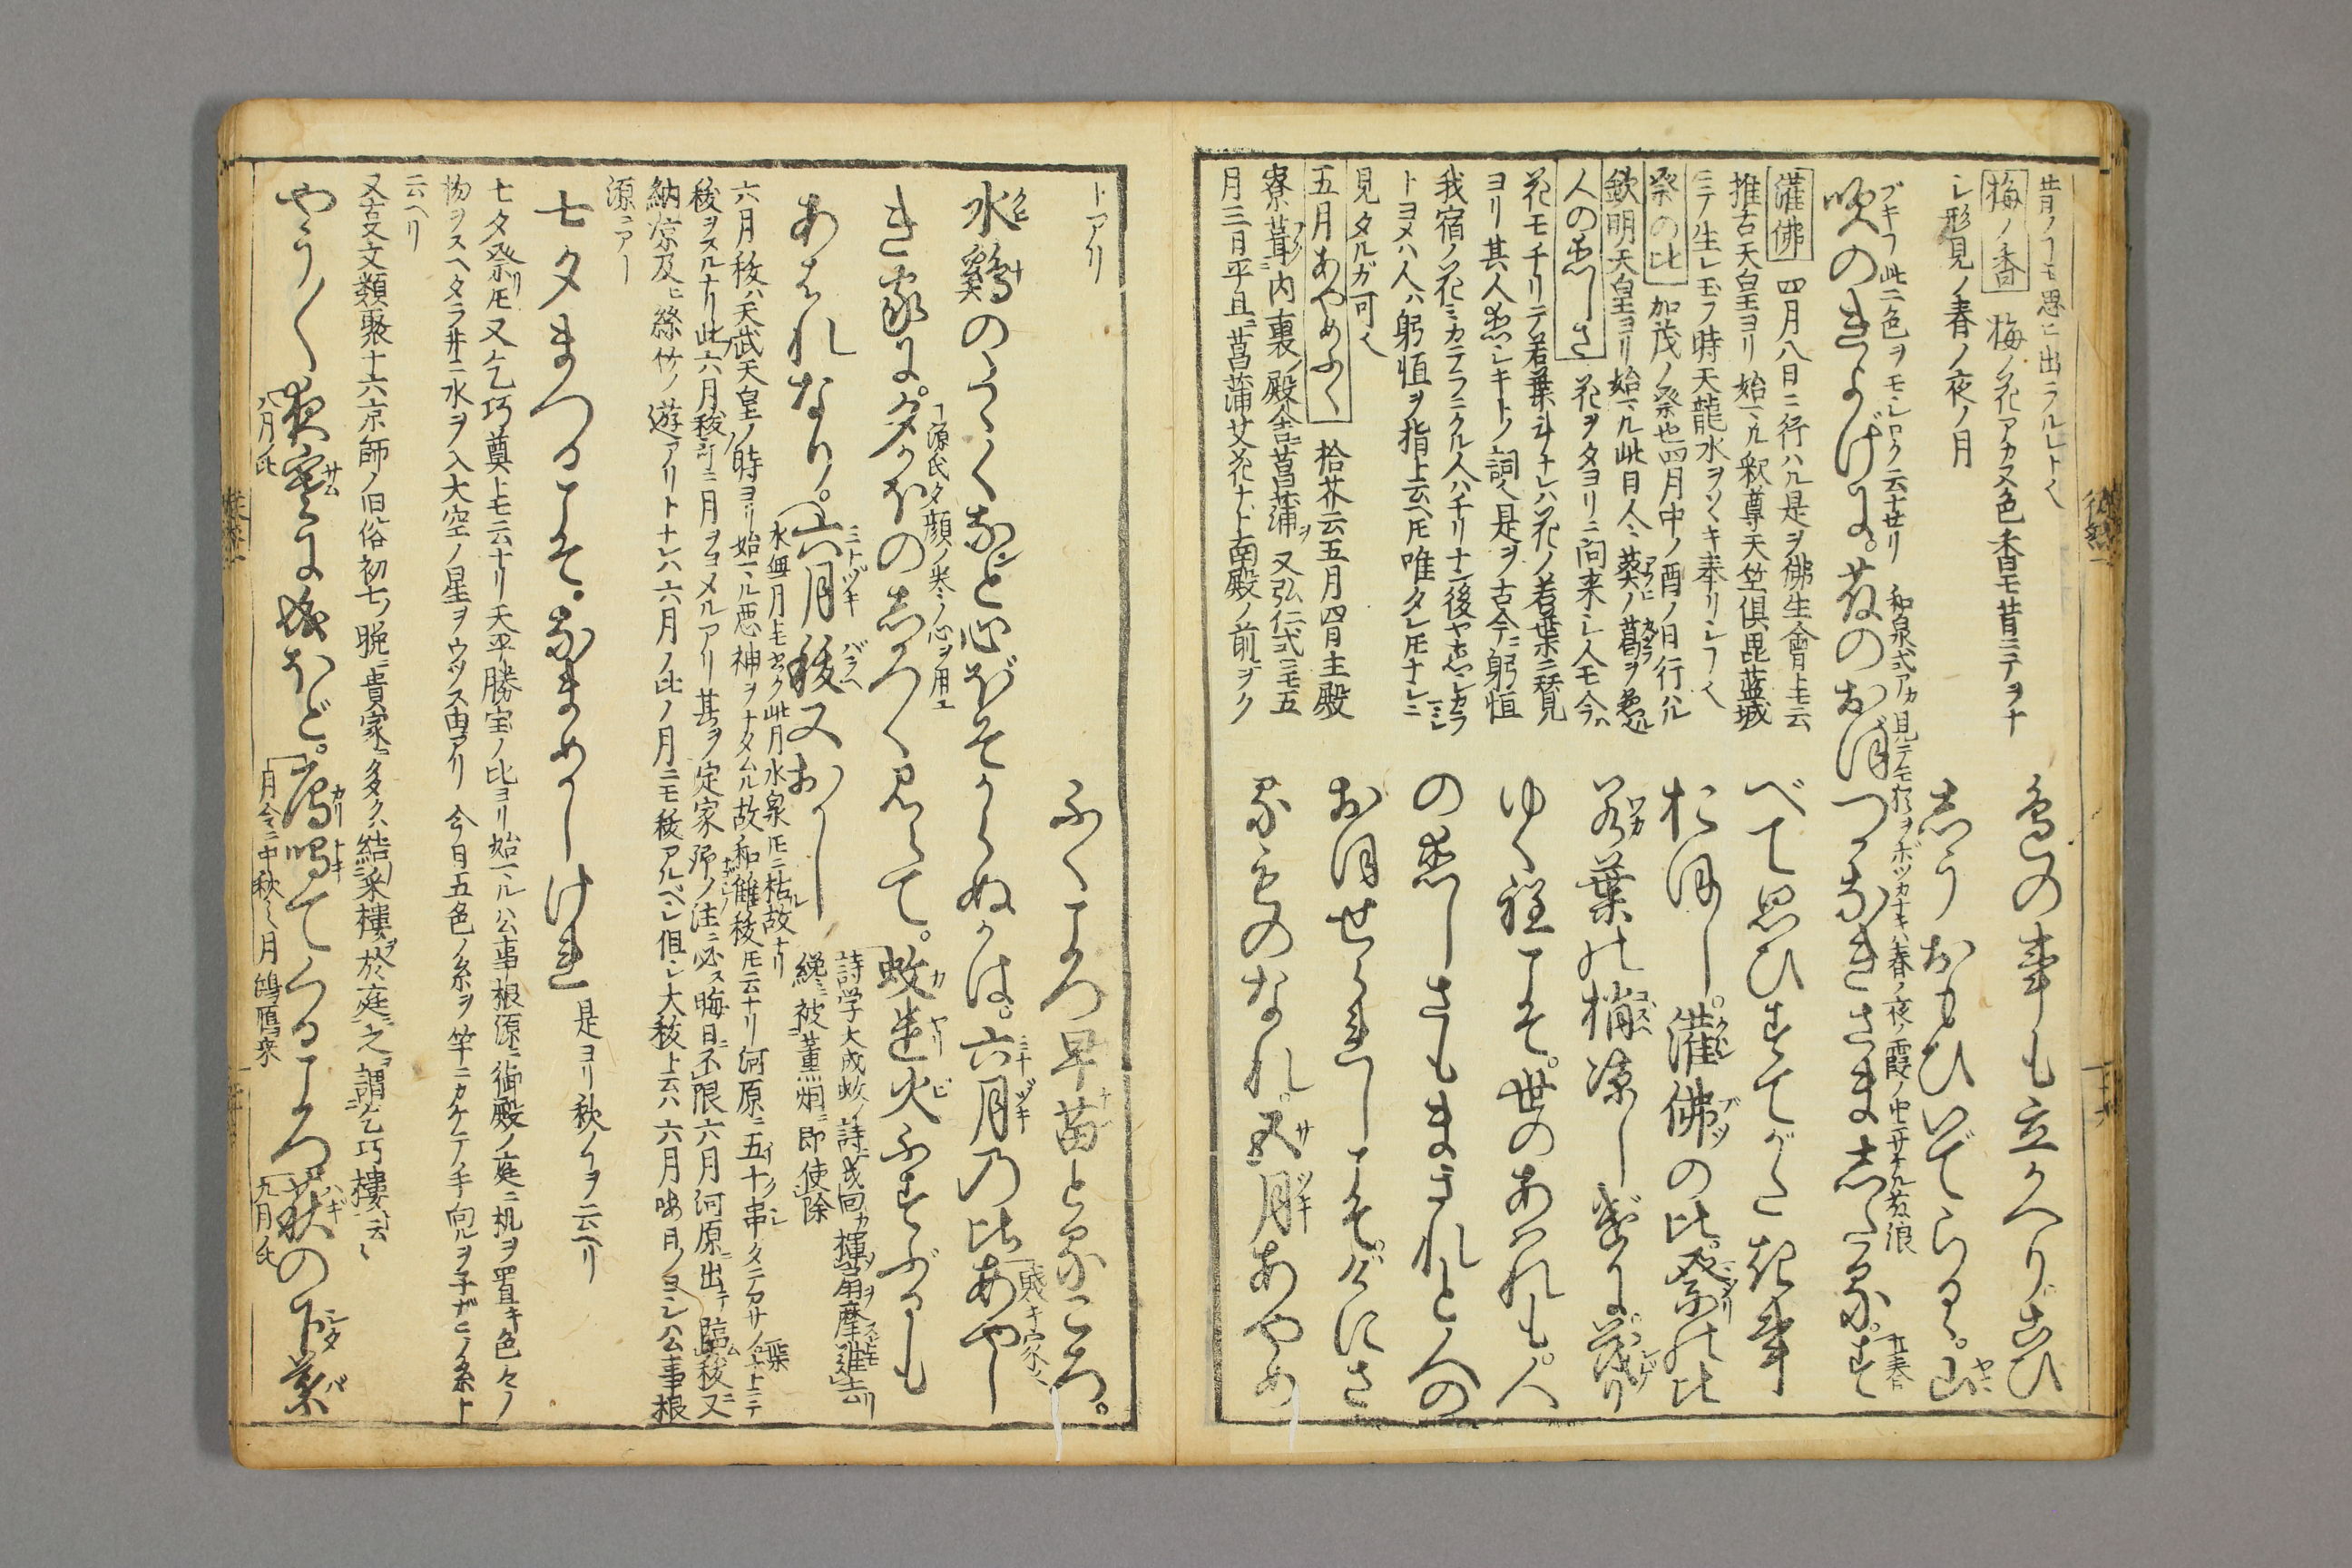 昔ノヿモ思ヒ出ラルレト也
梅ノ香 梅ノ花アカヌ色香モ昔ニテヲナ
シ形見ノ春ノ夜ノ月
ブキフ此二色ヲモシロク云ナセリ
灌佛 四月八日ニ行ハル是ヲ佛生會トモ云
推古天皇ヨリ始マル釈尊天竺倶毘藍城
ニテ生レ玉フ時天龍水ヲソヽキ奉リシヿ也
祭の比 加茂ノ祭也四月中ノ酉ノ日行ハル
欽明天皇ヨリ始マル此日人々葵ノ葛ヲ懸ル
人の恋しさ 花ヲタヨリニ問来シ人モ今ハ
花モチリテ若葉斗ナレハ花ノ若葉ニ替見
ヨリ其人恋シキトノ詞也是ヲ古今ニ躬恒
我宿ノ花ミカテラニクル人ハチリナン後ヤ恋シカラマシ
トヨメハ人ハ躬恒ヲ指ト云ヘ𪜈唯タレ𪜈ナシニ
見タルガ可也
五月あやめふく 拾芥云五月四日主殿
寮葺内裏殿舎菖蒲ヲ 又弘仁式ニモ五
月三日平旦ニ菖蒲艾花ナト南殿ノ前ヲク
色の事も立かへりこひ
しうおもひいでらるゝ。山
吹のきよげに。花のおぼつかなきさましたる。す
べて思ひすてがたき事
おほし。灌佛の比。祭の比
若葉の梢凉しげに茂り
ゆく程こそ。世のあはれも。人
の恋しさもまされと人の
おほせられしこそ。げにさ
るものなれ。五月あやめ
トアリ
ふくころ早苗とるころ。
水鶏のたゝくなど心ぼそからぬかは。六月の比あやし
賎キ家也
き家に。夕かほの志ろく見えて。蚊遣火ふすぶるも
源氏夕顔ノ巻ノ心ヲ用ユ
あはれなり。六月祓又おかし
水無月トモカク此月水泉𪜈ニ枯故ナリ
六月祓ハ天武天皇ノ時ヨリ始マル悪神ヲナタムル故和儺祓𪜈云ナリ河原ニ五十串タテアサノ葉
祓ヲスルナリ此六月祓計ニ月ヲヨメルアリ其ヲ定家卿ノ注ニ必ス晦日ニ不限六月河原ニ出テ臨祓又
納凉及ヒ絲竹ノ遊アリトナレハ六月ノ比ノ月ニモ祓アルベシ但シ大祓ト云ハ六月晦日ノヨシハ公事根
源ニアリ
七夕まつるこそ。なまめかしけれ 是ヨリ秋ノヿヲ云ヘリ
七夕祭リ𪜈又乞巧奠トモ云ナリ天平勝宝ノ比ヨリ始マル公事根源ニ御殿ノ庭ニ机ヲ置キ色々ノ
物ヲスヘタラ井ニ水ヲ入大空ノ星ヲウツス由アリ 今日五色ノ糸ヲ竿ニカケテ手向ルヲ子ガヒノ糸ト
云ヘリ
又古文類聚十六京師ノ旧俗初七ノ晩ニ貴家ニ多クハ結采樓ヲ於庭ニ之ヲ謂乞巧樓ト云々
やう〱夜寒に成ほど。鴈鳴てくるころ萩の下葉
八月比
月令ニ中秋之月鴻鴈来
九月比